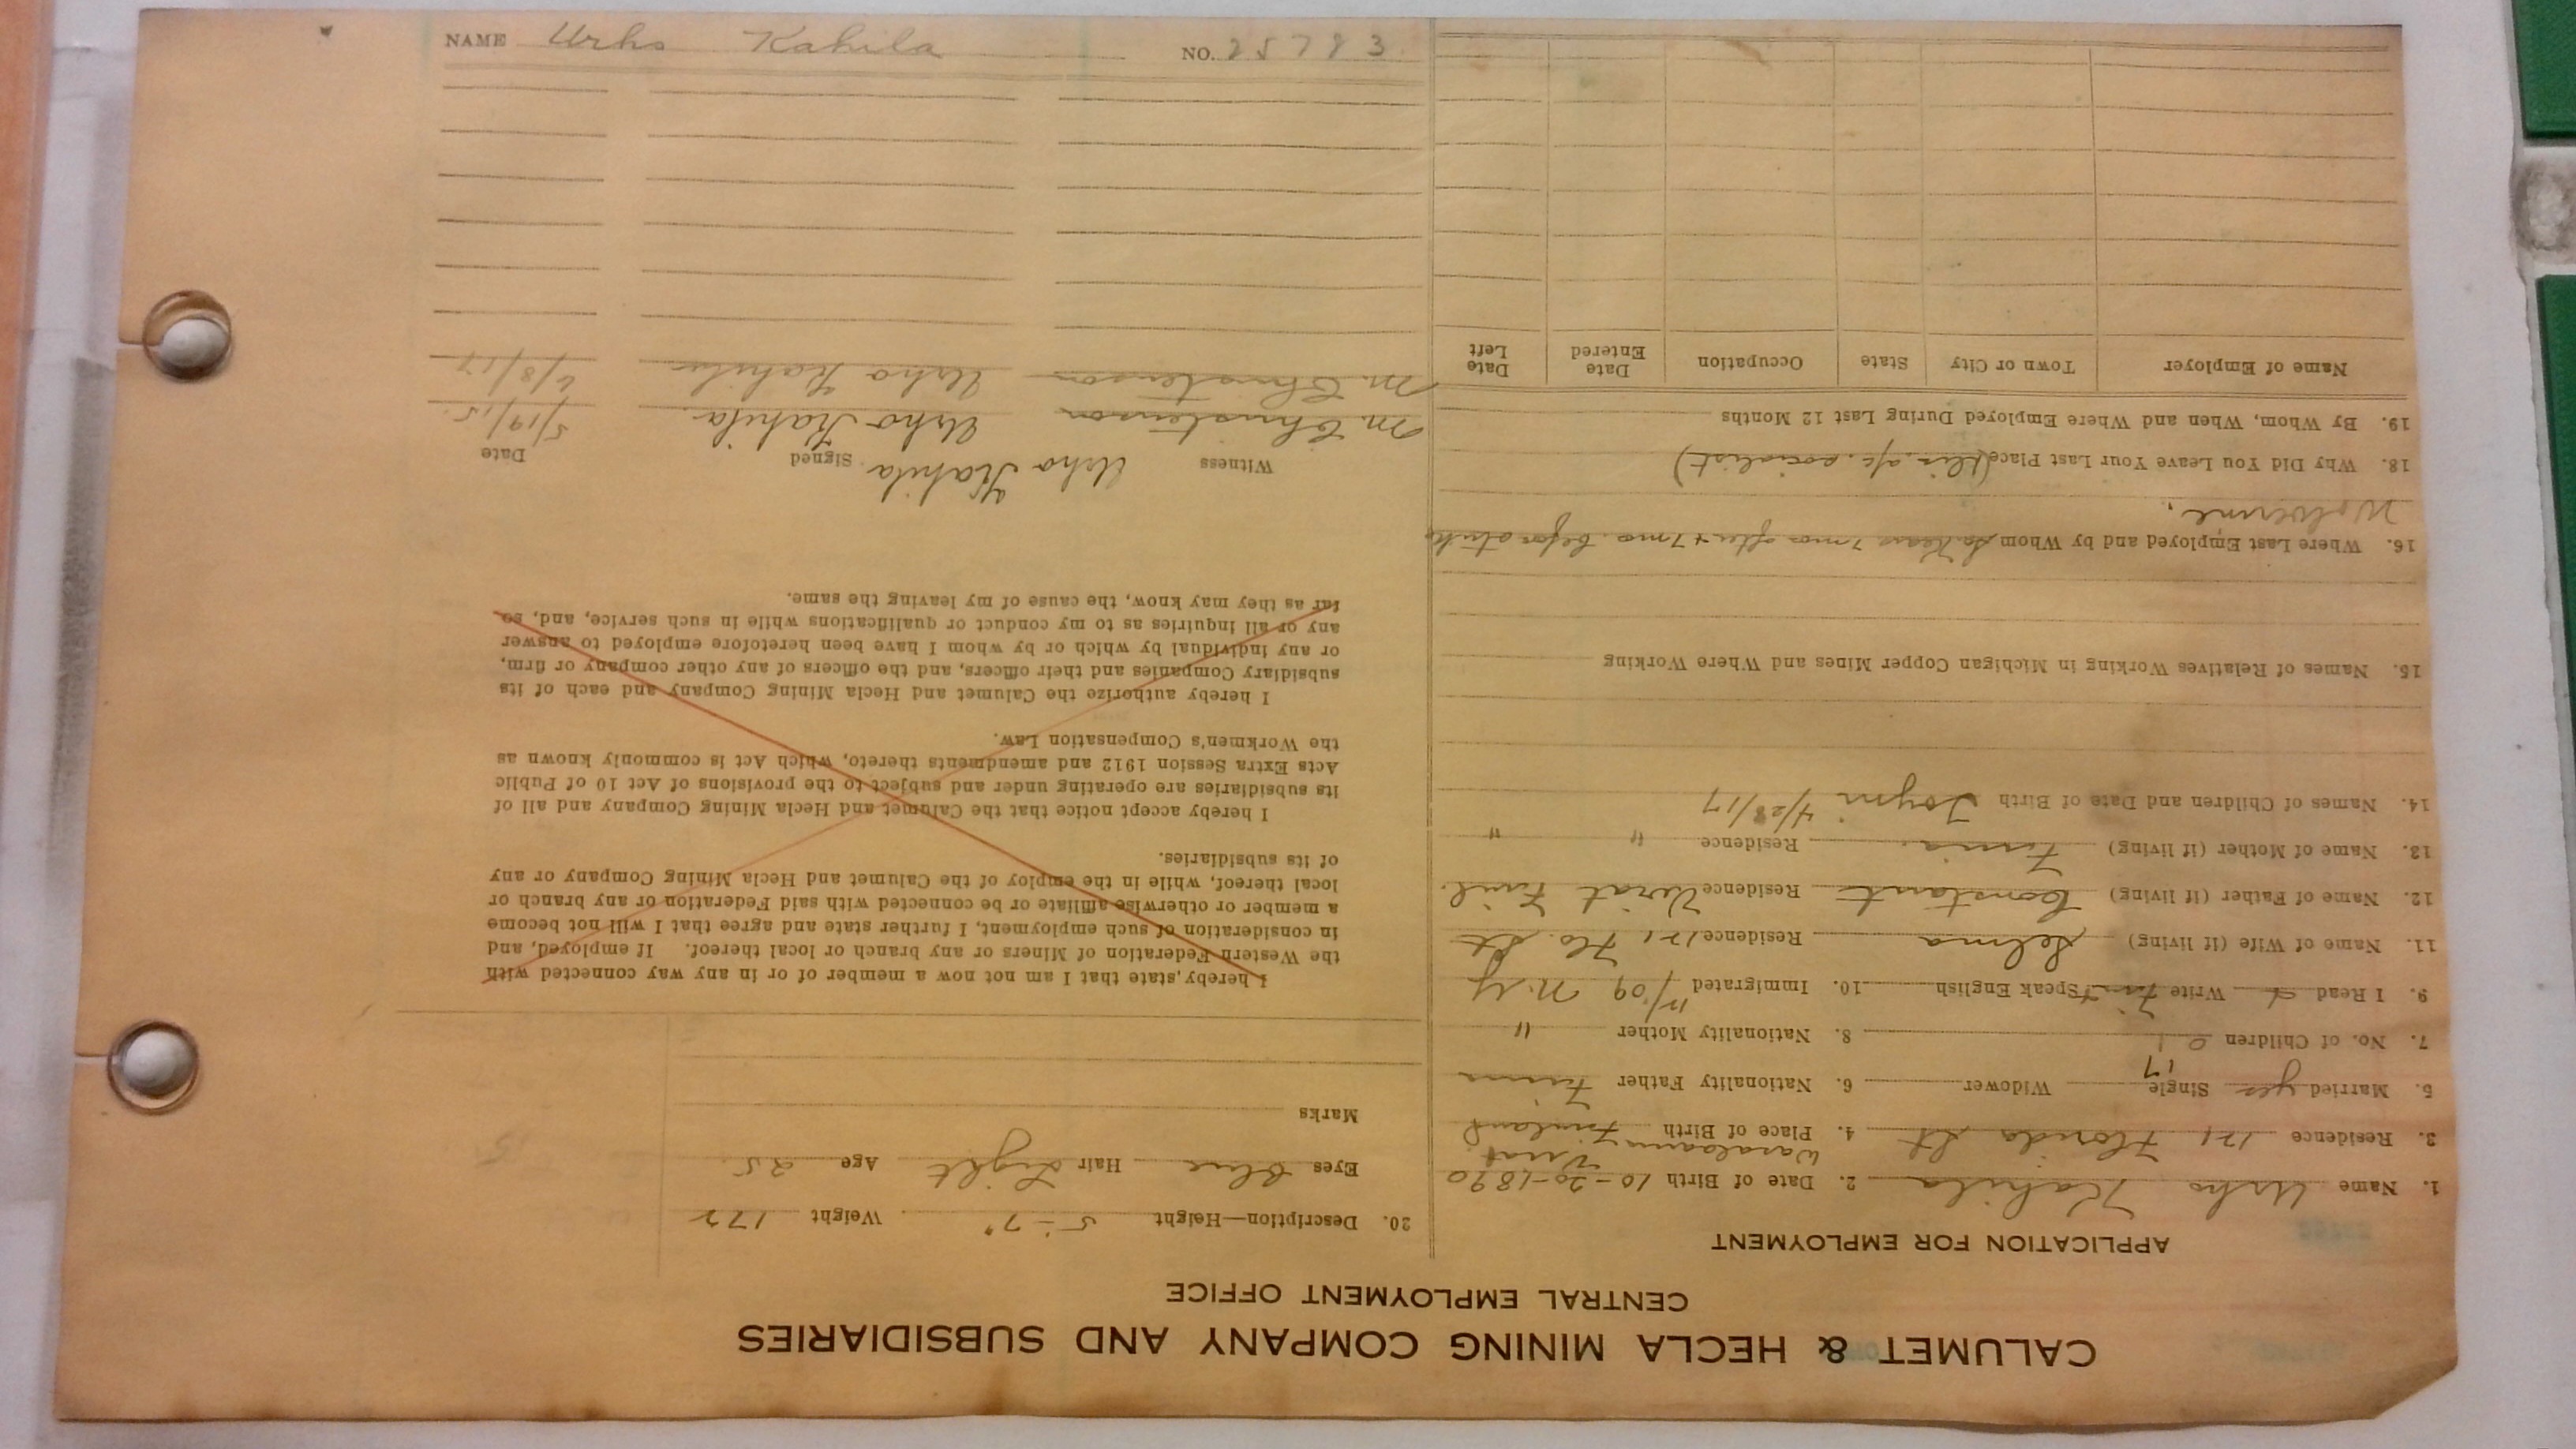 CALUMET & HECLA MINING COMPANY AND SUBSIDIARIES
CENTRAL EMPLOYMENT OFFICE
APPLICATION FOR EMPLOYMENT
1. Name Urho Kahila 2. Date of Birth 10-20-1890
3. Residence 121 Florida St 4. Place of Birth Finland
5. Married yes Single Widower 6. Nationality Father Finn
17
7. No. of Children 1 8. Nationality Mother "
9. I Read Write Finn Speak English 10. Immigrated 09 N.Y
11. Name of Wife (if living) Selma Residence 121 Flo. St
12. Name of Father (if living) Constant Residence Virat Finl.
13. Name of Mother (if living) Residence " "
14. Names of Children and Date of Birth Toyni 4/28/17
15. Names of Relatives Working in Michigan Copper Mines and Where Working
16. Where Last Employed and by Whom 7 mos after + 7 mo. before strike
Wolverine.
18. Why Did You Leave Your Last Place socialist)
19. By Whom, When and Where Employed During Last 12 Months
Name of Employer Town or City State Occupation Date Entered Date Left
20. Description—Height 5-7" Weight 172
Eyes Blue Hair Light Age 25
Marks
I hereby state that I am not now a member of or in any way connected with
the Western Federation of Miners or any branch or local thereof. If employed, and
in consideration of such employment, I further state and agree that I will not become
a member or otherwise affiliate or be connected with said Federation or any branch or
local thereof, while in the employ of the Calumet and Hecla Mining Company or any
of its subsidiaries.
I hereby accept notice that the Calumet and Hecla Mining Company and all of
its subsidiaries are operating under and subject to the provisions of Act 10 of Public
Acts Extra Session 1912 and amendments thereto, which Act is commonly known as
the Workmen's Compensation Law.
I hereby authorize the Calumet and Hecla Mining Company and each of its
subsidiary Companies and their officers, and the officers of any other company or firm,
or any individual by which or by whom I have been heretofore employed to answer
any or all inquiries as to my conduct or qualifications while in such service, and, so
far as they may know, the cause of my leaving the same.
Urho Kahila
Witness Signed Date
M. Christenson Urho Kahila 5/19/15
M. Christenson Urho Kahila 6/8/17
NAME Urho Kahila NO. 25783